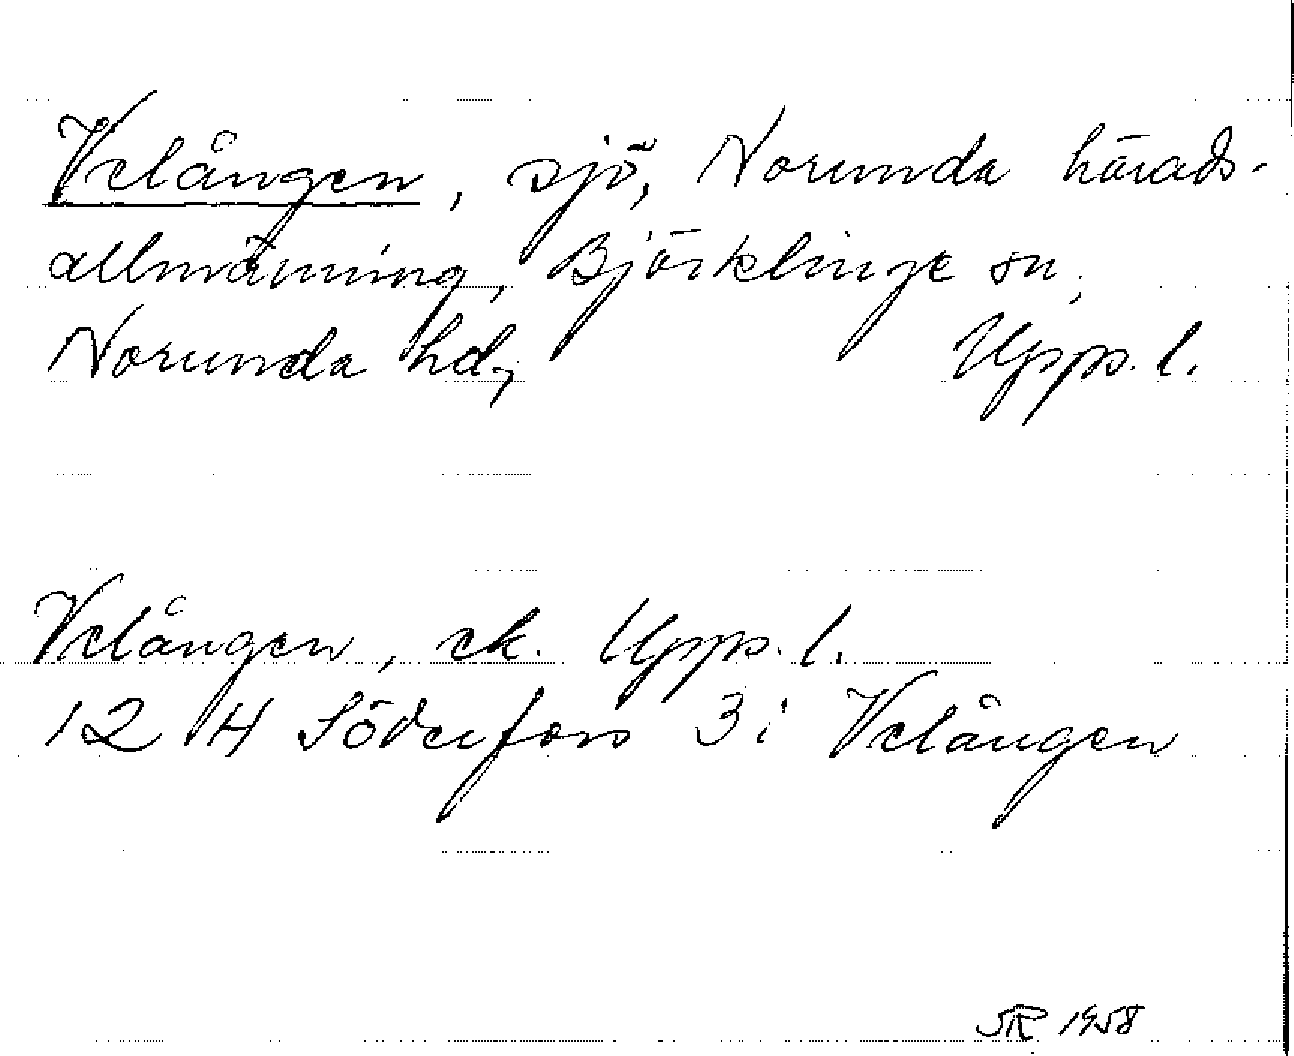 Velången, sjö, Norunda härads-
allmänning, Björklinge sn,
Norunda hd, Upps. l.
Velången, ek. Upps. l.
12 H Söderfors 3 i Velången
SR 1958